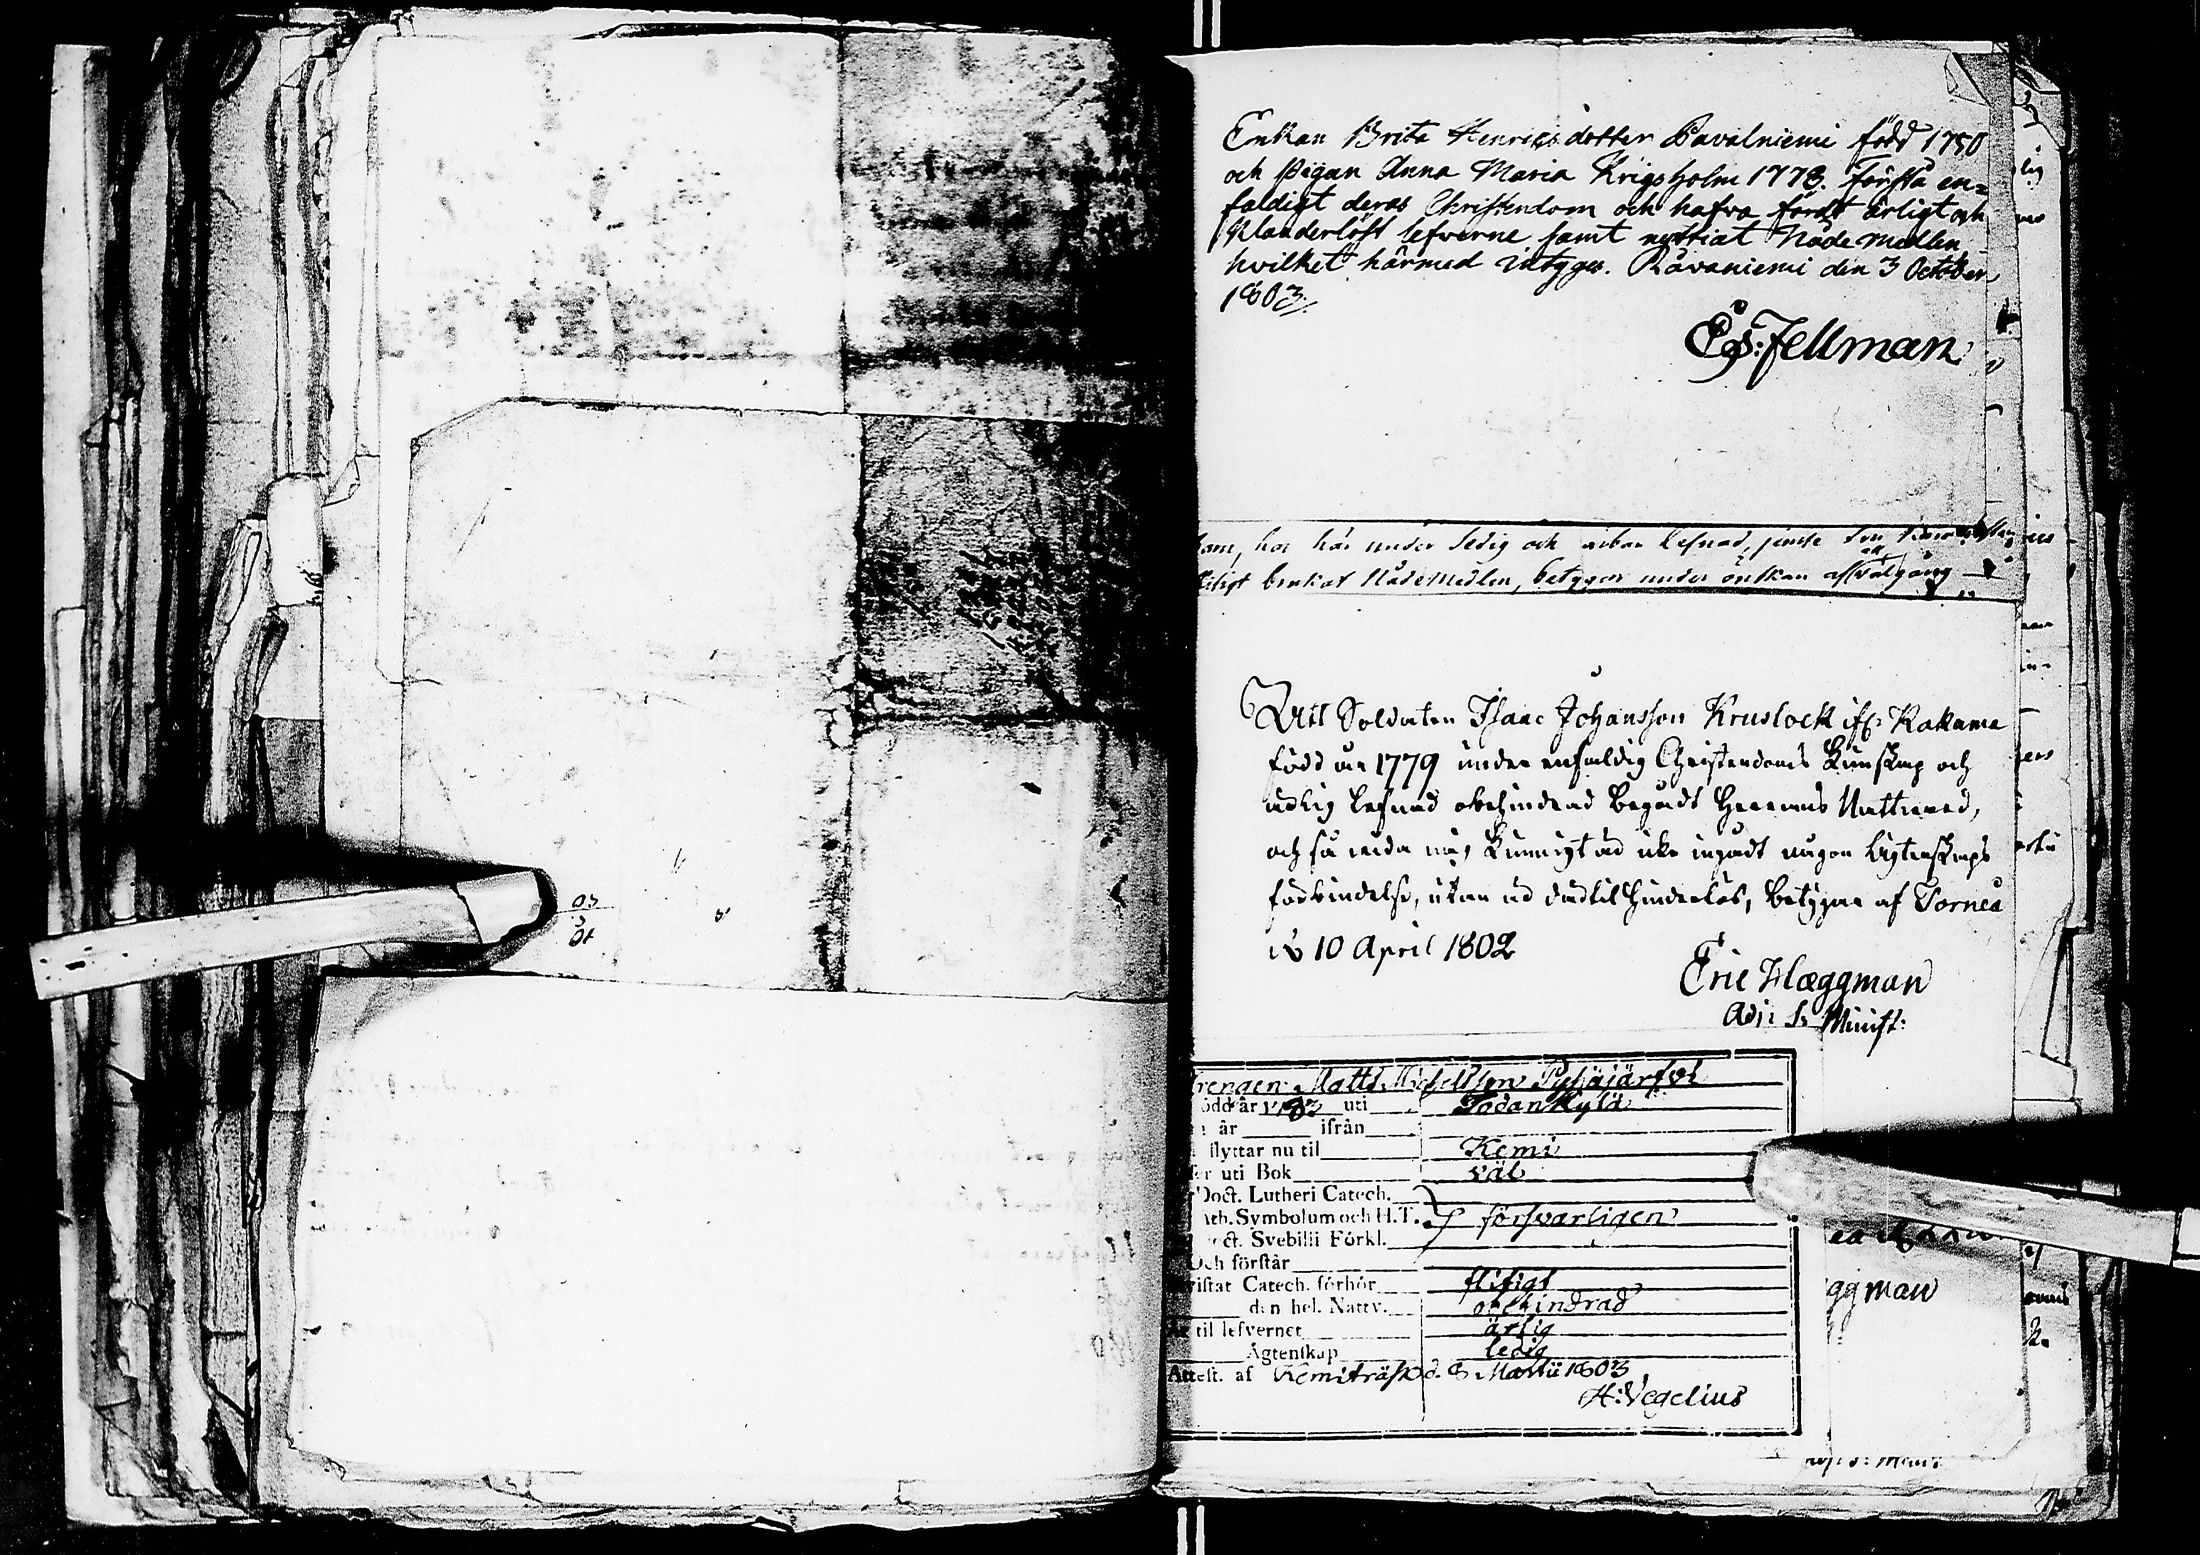 Enkan Brita Henricsdotter Pavalniemi född 1750
och Pigan Anna Maria Krigsholm 1778. Förstå en=
faldigt deras Christendom och hafva fördt ärligt och
klanderlöst lefverne samt nyttiat Nådemedlen
hvilket härmed intygas. Råvaniemi den 3 October
1803.
Es: Fellman
har här under sedig och ärbar lefnad, jemte
brukat Nådemedlen, betygar under önskan af all välgång
Att Soldaten Isaac Johansson Kruslock ifr: Kakama
född åir 1779 under enfaldig Christendoms Kunskap och
ärlig lefnad obehindrad begådt Herrans Nattward,
och så vida mig kunnigt är icke ingådt någon Ägtenskaps
förbindelse, utan är dertil hinderlös, betygar af Torneå
d. 10 April 1802
Eric Hæggman
Adj: Minist:
rengen Matts Michelsson Pyhäjärfvi
ödd år 1783 uti Sodankylä
år ifrån
flyttar nu til Kemi
er uti Bok väl
Doct. Lutheri Catech.
Ath. Symbolum och H.T. försvarligen
ct. Svebilii Förkl.
Och förstår
vistat Catech. förhör flitigt
den hel. Nattv. obehindrad
til lefvernet ärlig
Ägtenskap ledig
Attest. af Kemiträsk d. 8 Martii 1803
H: Vegelius
ggman